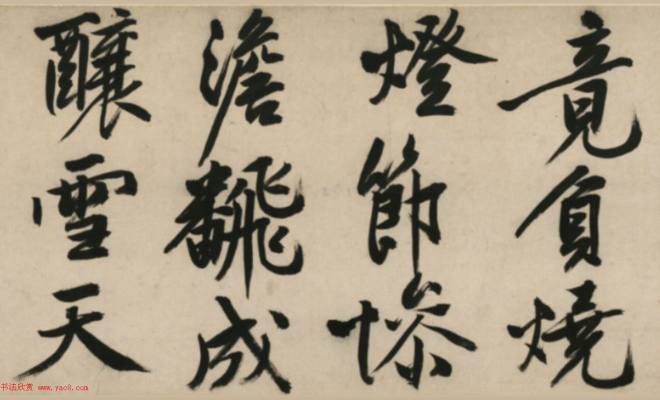 竟負燒
燈節慘
澹飜成
釀雪天
书法欣赏 www.yac8.com